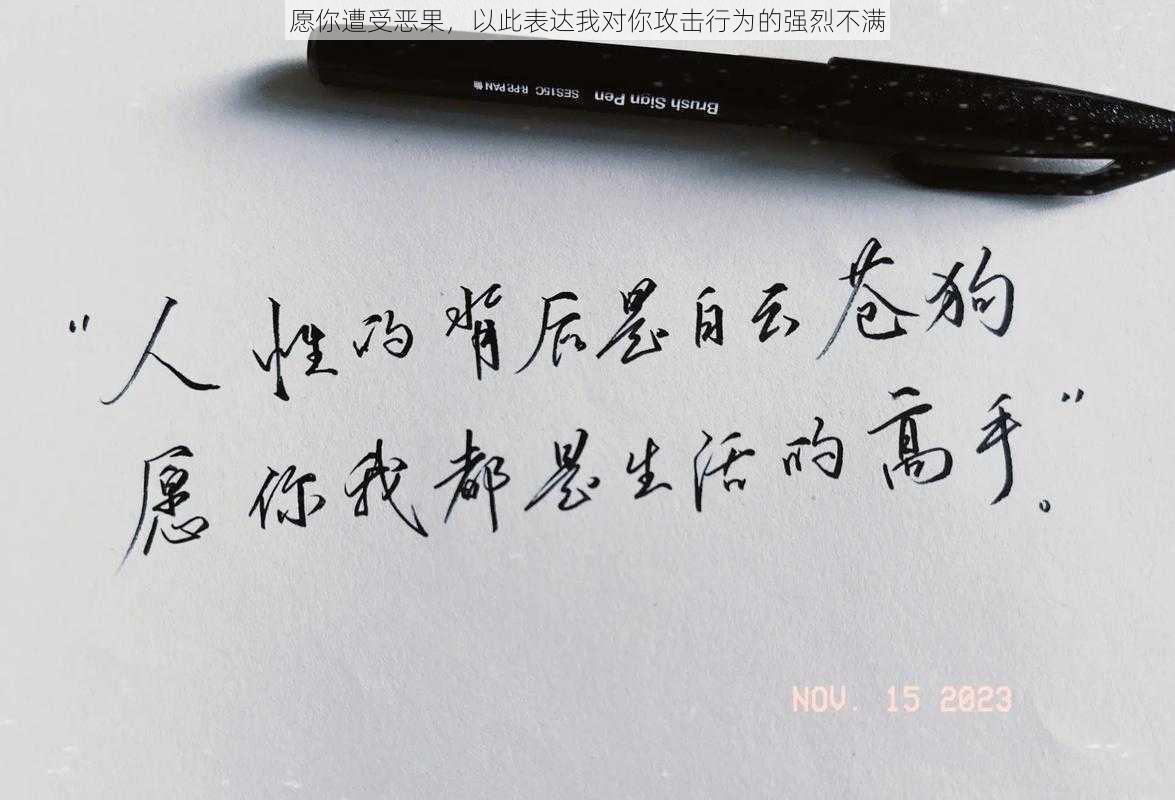 愿你遭受恶果，以此表达我对你攻击行为的强烈不满
Brush Sign Pen SES15C
“人性的背后是白云苍狗
愿你我都是生活的高手。”
NOV. 15 2023